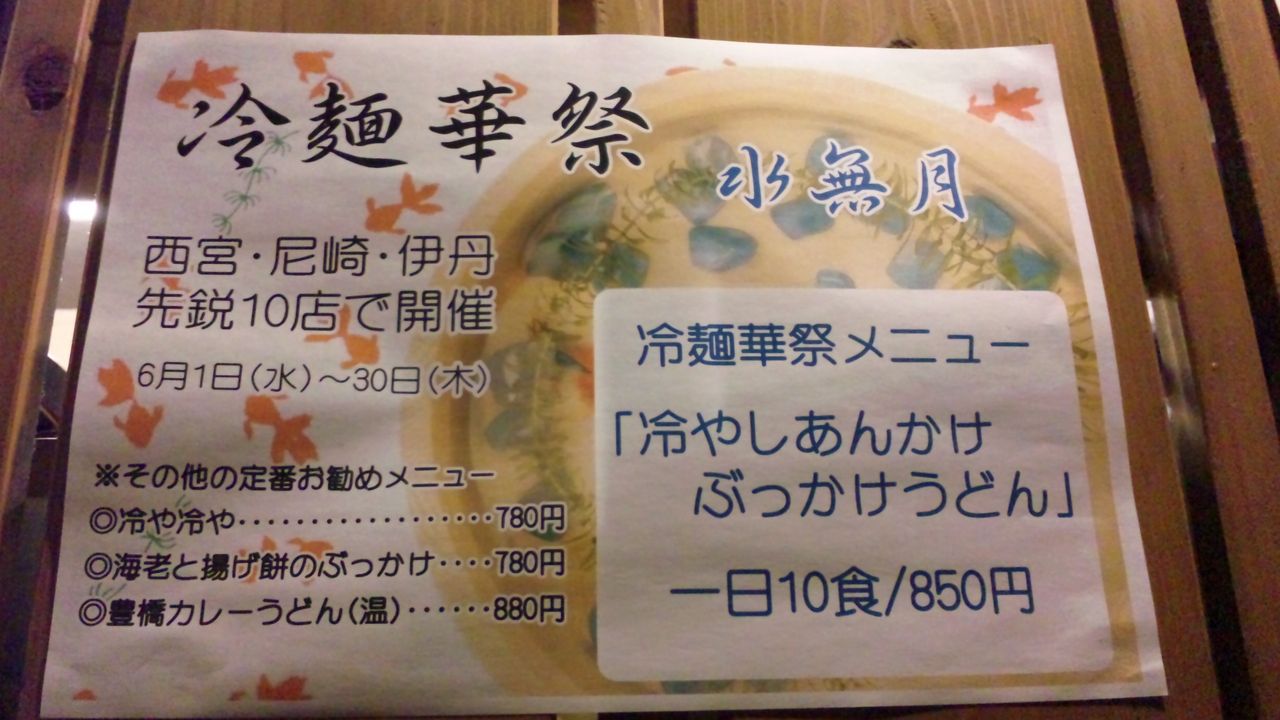 冷麺華祭
水無月
西宮・尼崎・伊丹
先鋭10店で開催
6月1日(水)～30日(木)
※その他の定番お勧めメニュー
◎冷や冷や・・・・・・・・・・・・・・・・・・780円
◎海老と揚げ餅のぶっかけ・・・・780円
◎豊橋カレーうどん(温)・・・・・・880円
冷麺華祭メニュー
「冷やしあんかけ
ぶっかけうどん」
一日10食/850円